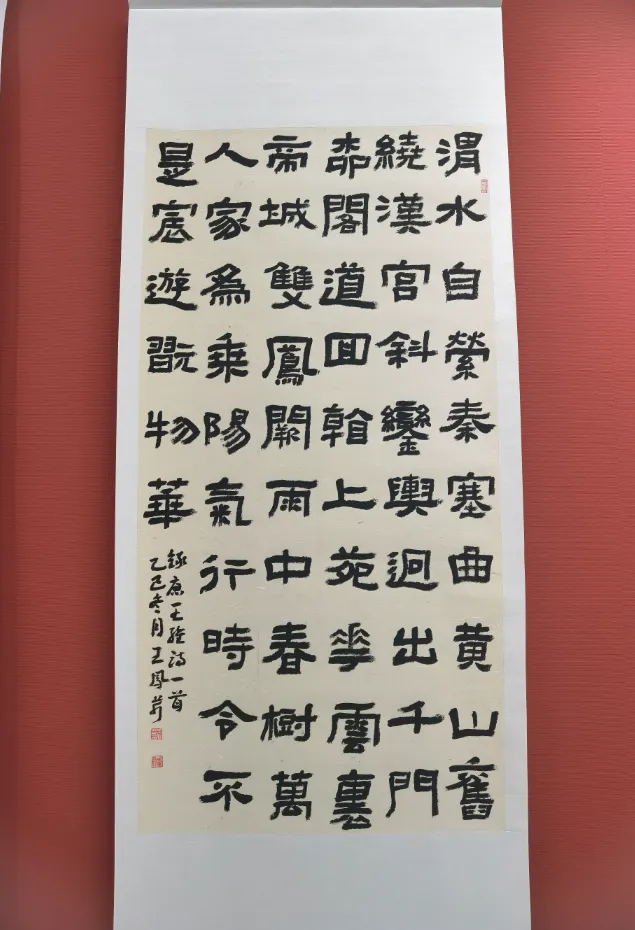 渭水自縈秦塞曲黄山舊
繞漢宮斜鑾輿逈出千門
柳閣道回看上苑花雲裏
帝城雙鳳闕雨中春樹萬
人家爲乘陽氣行時令不
是宸遊翫物華
錄唐王維詩一首
乙巳冬月王鳳